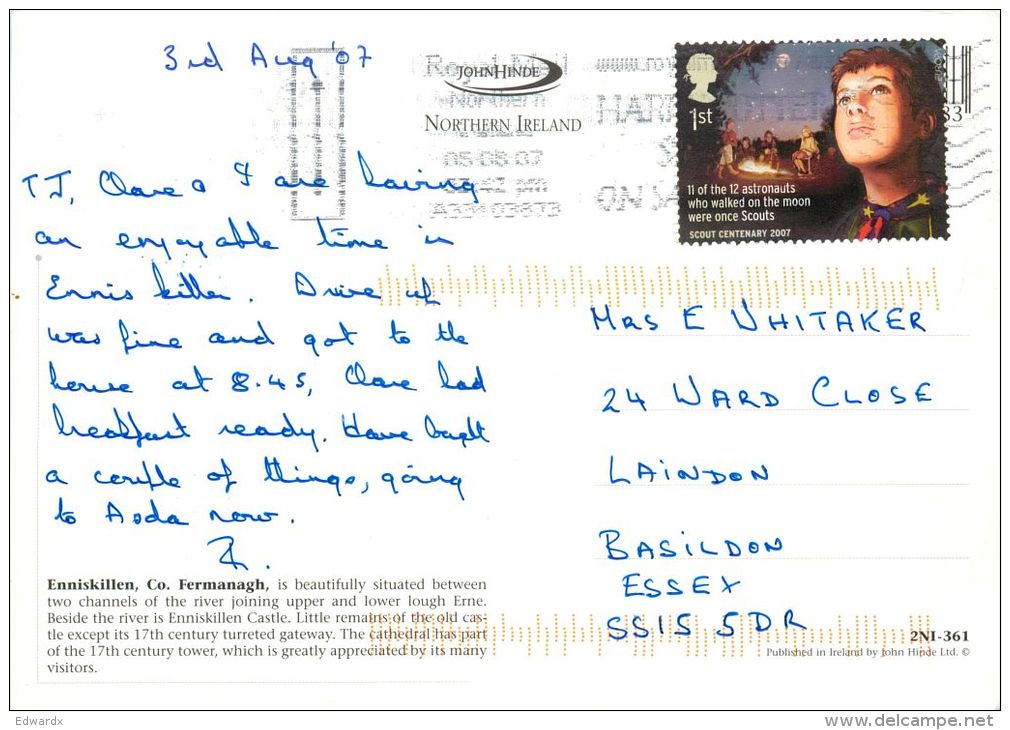 3rd Aug '07
JOHN HINDE
NORTHERN IRELAND
Royal Mail
Northern
05.08.07
1st
11 of the 12 astronauts
who walked on the moon
were once Scouts
SCOUT CENTENARY 2007
TJ, Clare & I are having
an enjoyable time in
Enniskillen. Drive up
was fine and got to the
house at 8.45, Clare had
breakfast ready. Have bought
a couple of things, going
to Asda now.
MRS E WHITAKER
24 WARD CLOSE
LAINDON
BASILDON
ESSEX
SS15 5DR
Enniskillen, Co. Fermanagh, is beautifully situated between
two channels of the river joining upper and lower lough Erne.
Beside the river is Enniskillen Castle. Little remains of the old cas-
tle except its 17th century turreted gateway. The cathedral has part
of the 17th century tower, which is greatly appreciated by its many
visitors.
2NI-361
Published in Ireland by John Hinde Ltd. ©
Edwardx
www.delcampe.net